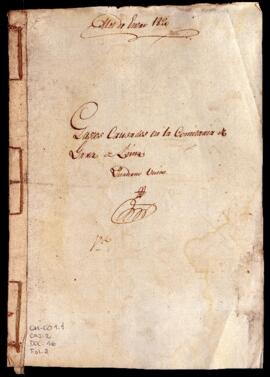 Mes de Enero 182
Gastos Causados en la Comisaria de
Grra de Lima
Quaderno Unico
CM-CO 1.1
CAJ: 2
DOC: 46
Fol: 2